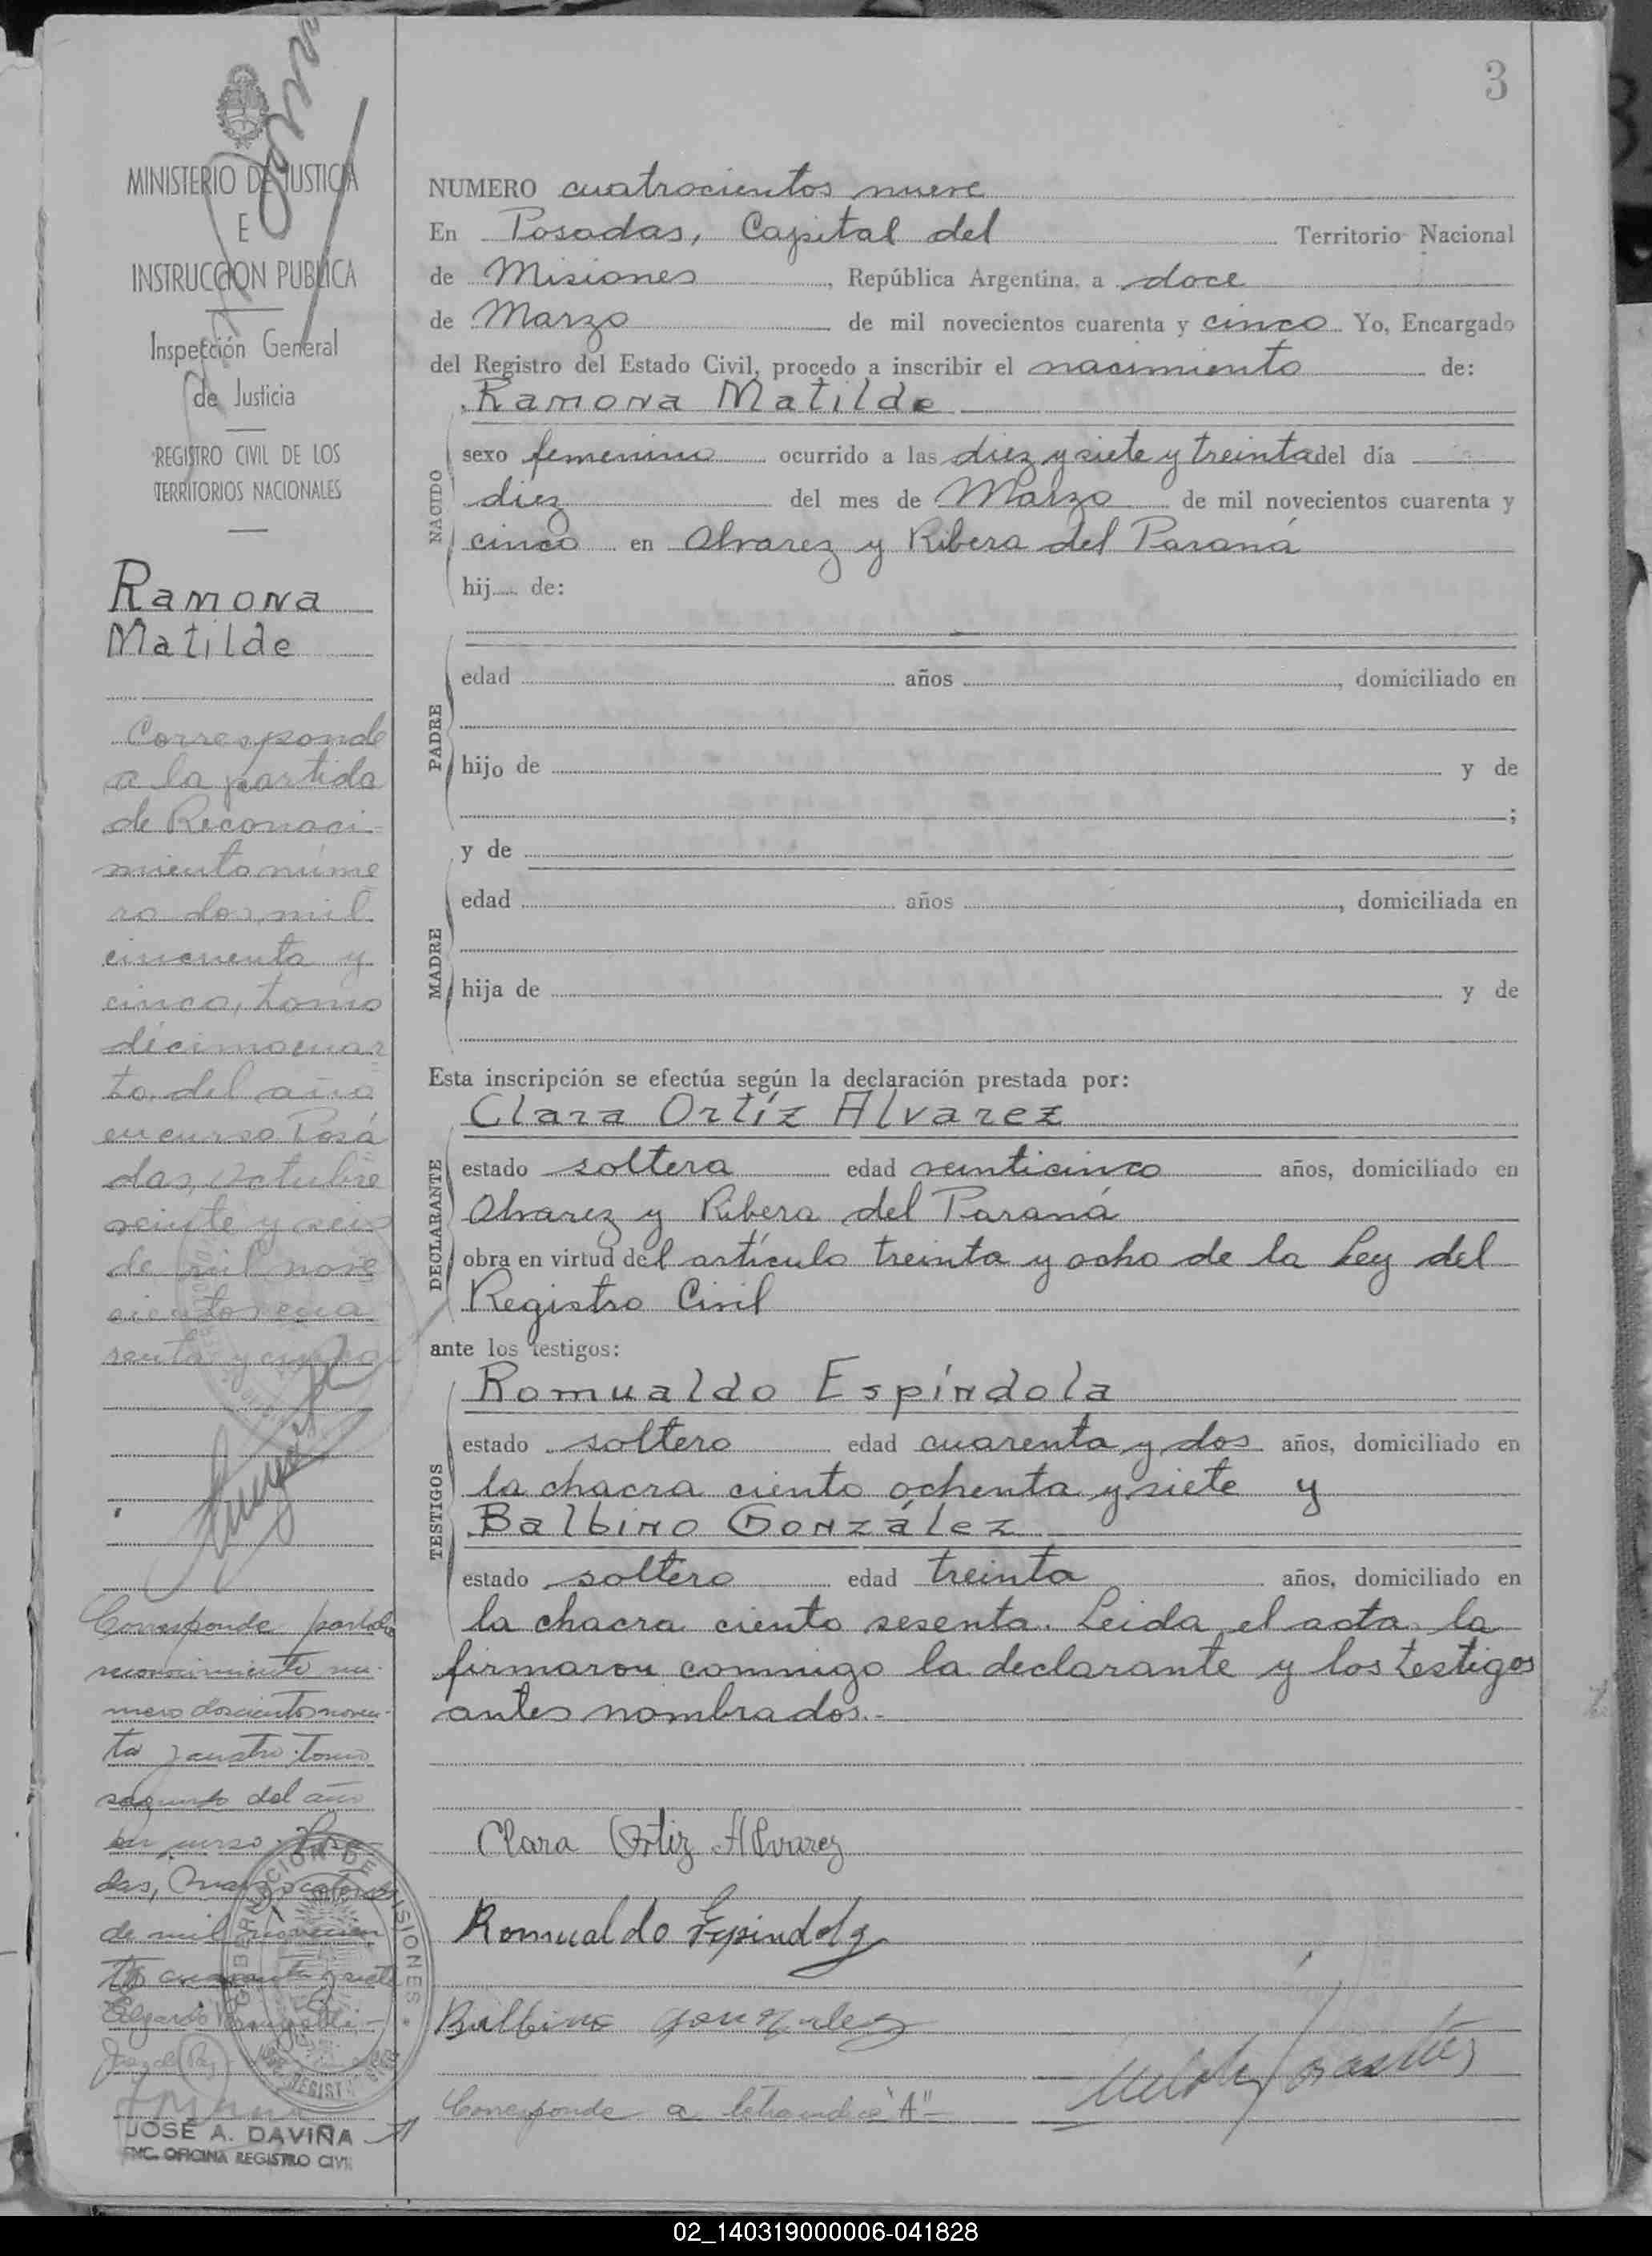 3
MINISTERIO DE JUSTICIA
E
INSTRUCCION PUBLICA
Inspección General
de Justicia
REGISTRO CIVIL DE LOS
TERRITORIOS NACIONALES
Ramona
Matilde
Corresponde
a la partida
de Reconoci-
miento núme
ro dos mil
cincuenta y
cinco, tomo
décimocuar
to del año
en curso Posa
das, Octubre
veinte y seis
de mil nove
cientos cua
renta y cinco
Corresponde partida
reconocimiento nu-
mero doscientos noven-
ta y cuatro tomo
segundo del año
en curso. Posa-
das, Marzo catorce
de mil novecien
tos cuarenta y siete
Juez de Paz
GOBERNACIÓN DE MISIONES
JOSÉ A. DAVIÑA
ENC. OFICINA REGISTRO CIVIL
NUMERO cuatrocientos nueve
En Posadas, Capital del Territorio Nacional
de Misiones, República Argentina, a doce
de Marzo de mil novecientos cuarenta y cinco Yo, Encargado
del Registro del Estado Civil, procedo a inscribir el nacimiento de:
Ramona Matilde
NACIDO
sexo femenino ocurrido a las diez y siete y treinta del día
diez del mes de Marzo de mil novecientos cuarenta y
cinco en Alvarez y Ribera del Paraná
hij de:
PADRE
edad años, domiciliado en
hijo de y de
;
y de
MADRE
edad años, domiciliada en
hija de y de
Esta inscripción se efectúa según la declaración prestada por:
Clara Ortíz Alvarez
DECLARANTE
estado soltera edad veinticinco años, domiciliado en
Alvarez y Ribera del Paraná
obra en virtud del artículo treinta y ocho de la Ley del
Registro Civil
ante los testigos:
Romualdo Espíndola
TESTIGOS
estado soltero edad cuarenta y dos años, domiciliado en
la chacra ciento ochenta y siete y
Balbino González
estado soltero edad treinta años, domiciliado en
la chacra ciento sesenta. Leida el acta, la
firmaron conmigo la declarante y los testigos
antes nombrados.-
Clara Ortiz Alvarez
Romualdo Espindola
Balbino gonzalez
Corresponde a letra indice "A"-
02_140319000006-041828